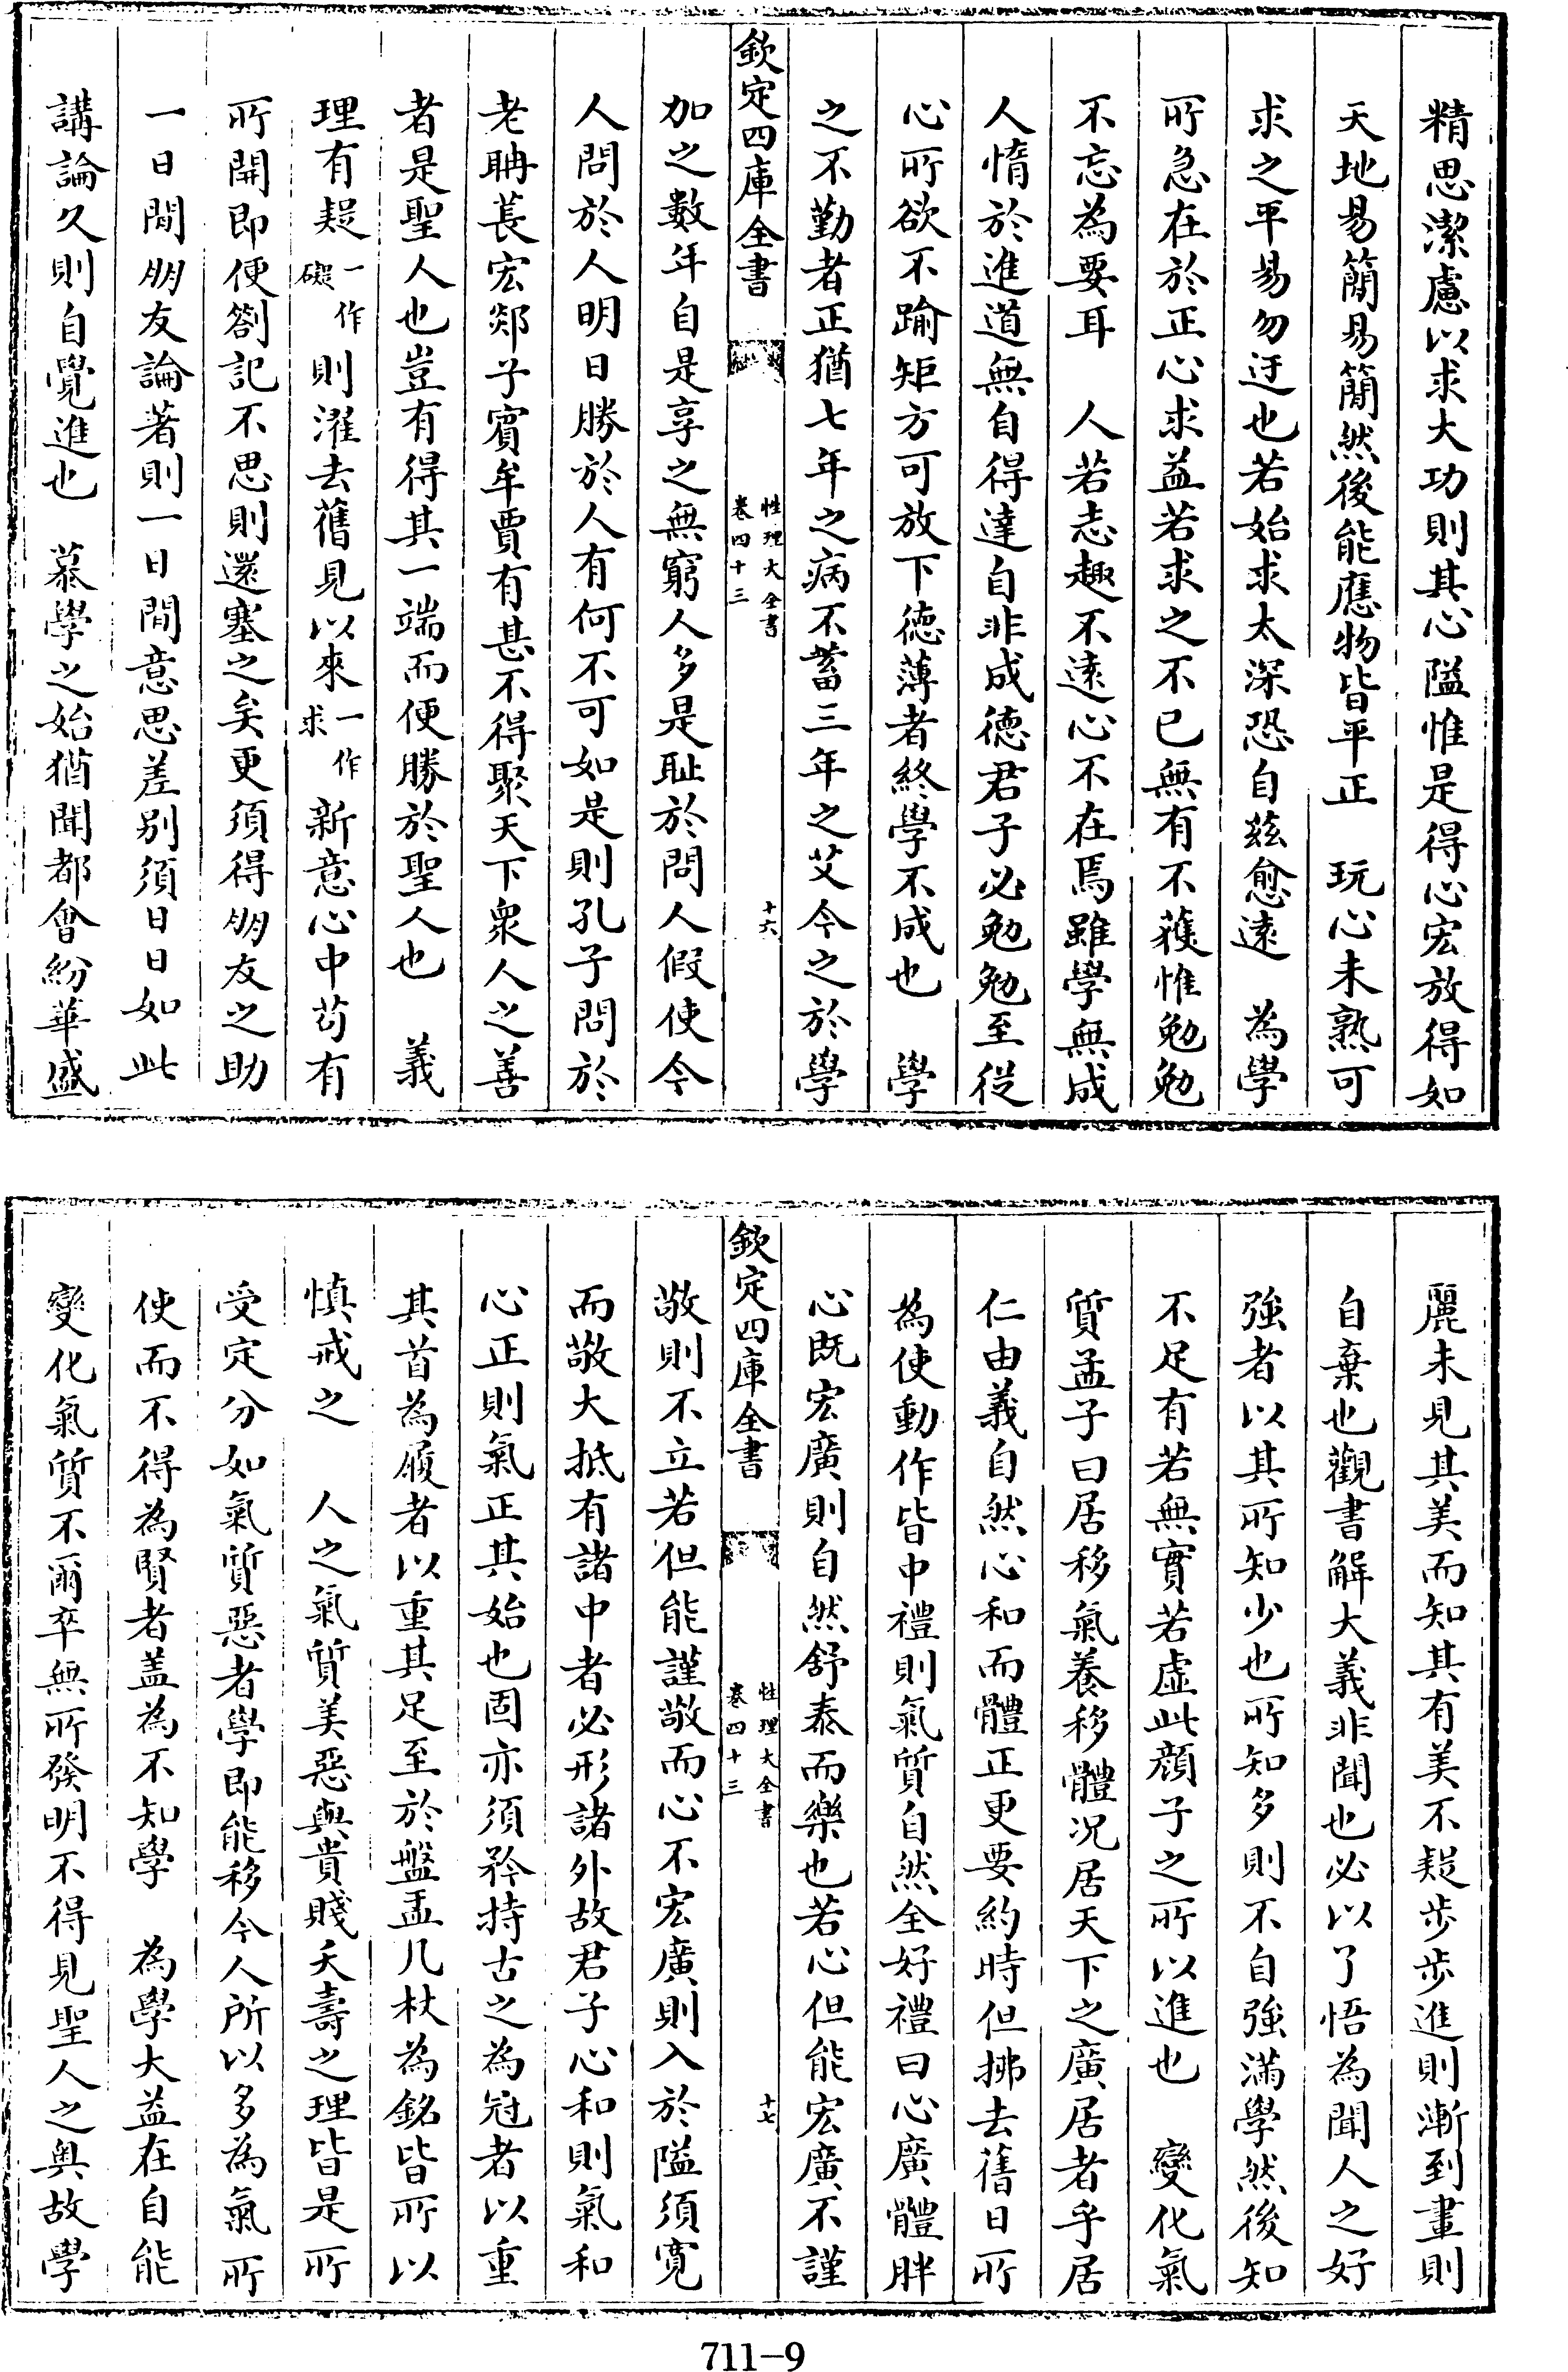 精思潔慮以求大功則其心隘惟是得心宏放得如
天地易簡易簡然後能應物皆平正　玩心未熟可
求之平易勿迂也若始求太深恐自茲愈遠　為學
所急在於正心求益若求之不已無有不獲惟勉勉
不忘為要耳　人若志趣不逺心不在焉雖學無成
人惰於進道無自得達自非成德君子必勉勉至從
心所欲不踰矩方可放下德薄者終學不成也　學
之不勤者正猶七年之病不蓄三年之艾今之於學
欽定四庫全書
性理大全書
卷四十三
十六
加之數年自是享之無窮人多是恥於問人假使今
人問於人明日勝於人有何不可如是則孔子問於
老聃萇宏郯子賓牟賈有甚不得聚天下衆人之善
者是聖人也豈有得其一端而便勝於聖人也　義
理有疑一作礙則濯去舊見以來一作求新意心中茍有
所開即便劄記不思則還塞之矣更須得朋友之助
一日間朋友論著則一日間意思差别須日日如此
講論久則自覺進也　慕學之始猶聞都㑹紛華盛
麗未見其美而知其有美不疑步步進則漸到畫則
自棄也觀書解大義非聞也必以了悟為聞人之好
强者以其所知少也所知多則不自强滿學然後知
不足有若無實若虛此顔子之所以進也　變化氣
質孟子曰居移氣養移體况居天下之廣居者乎居
仁由義自然心和而體正更要約時但拂去舊日所
為使動作皆中禮則氣質自然全好禮曰心廣體胖
心既宏廣則自然舒泰而樂也若心但能宏廣不謹
欽定四庫全書
性理大全書
卷四十三
十七
敬則不立若但能謹敬而心不宏廣則入於隘須寛
而敬大抵有諸中者必形諸外故君子心和則氣和
心正則氣正其始也固亦須矜持古之為冠者以重
其首為履者以重其足至於盤盂几杖為銘皆所以
慎戒之　人之氣質美惡與貴賤夭壽之理皆是所
受定分如氣質惡者學即能移今人所以多為氣所
使而不得為賢者盖為不知學　為學大益在自能
變化氣質不爾卒無所發明不得見聖人之奥故學
711-9